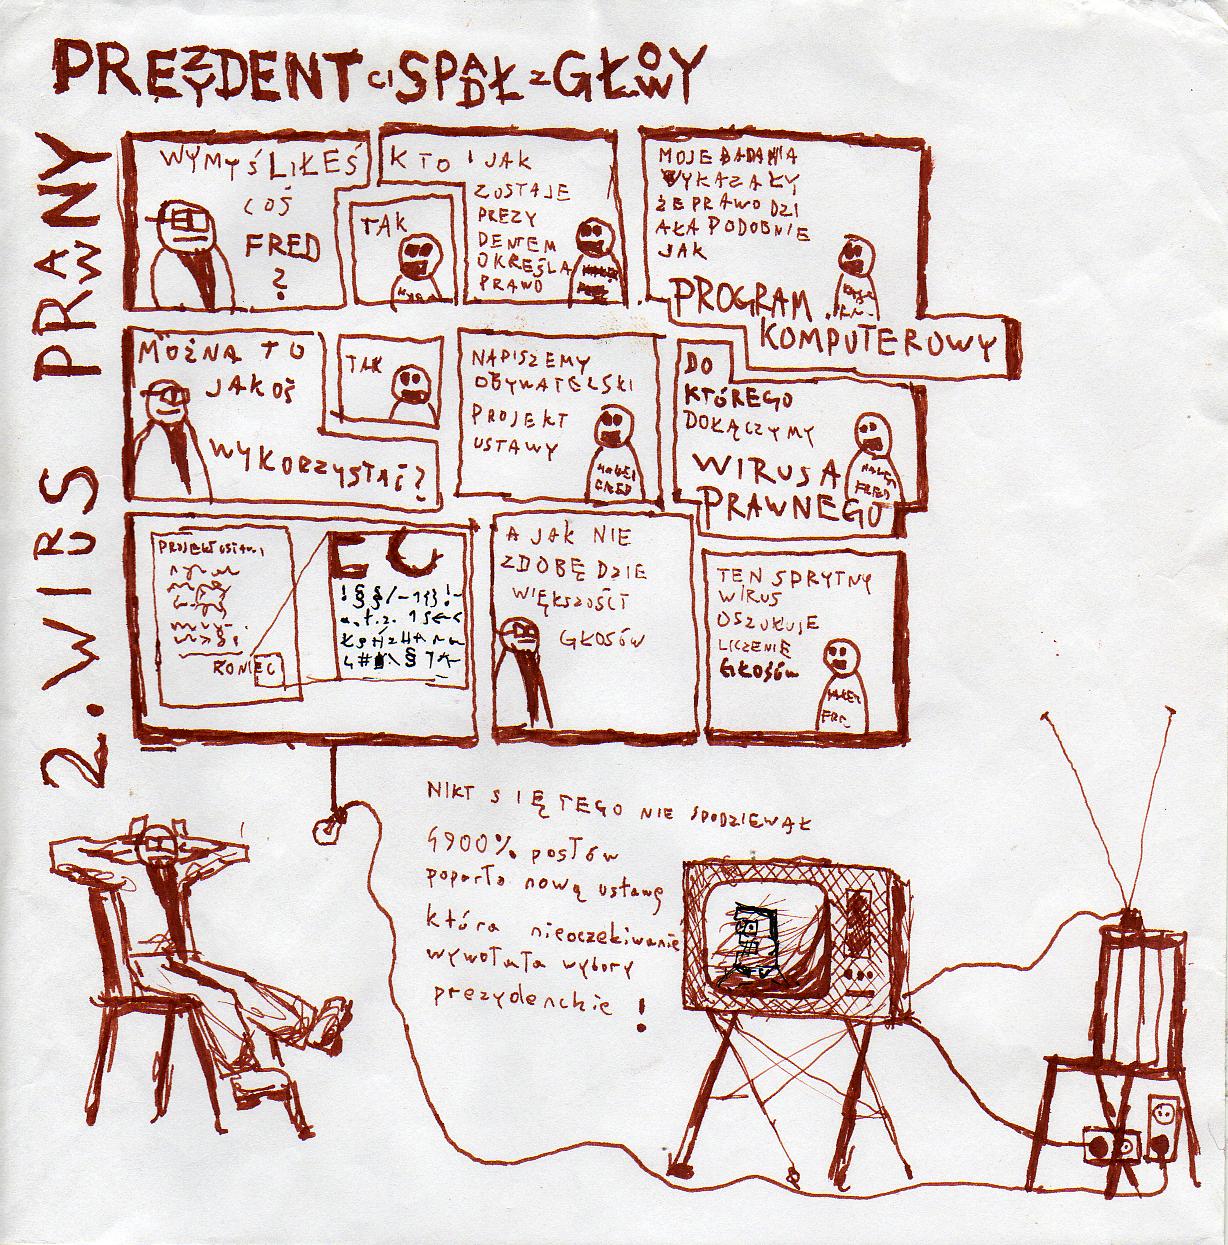 PREZYDENT CI SPADŁ Z GŁOWY
2. WIRUS PRAWNY
WYMYŚLIŁEŚ
COŚ
FRED
?
TAK
KTO I JAK
ZOSTAJE
PREZY
DENTEM
OKREŚLA
PRAWO
MOJE BADANIA
WYKAZAŁY
ŻE PRAWO DZI
AŁA PODOBNIE
JAK
PROGRAM
KOMPUTEROWY
MOŻNA TO
JAKOŚ
WYKORZYSTAĆ?
TAK
NAPISZEMY
OBYWATELSKI
PROJEKT
USTAWY
DO
KTÓREGO
DOŁĄCZYMY
WIRUSA
PRAWNEGO
FRED
PROJEKT USTAWY
KONIEC
EC
A JAK NIE
ZDOBĘDZIE
WIĘKSZOŚCI
GŁOSÓW
TEN SPRYTNY
WIRUS
OSZUKUJE
LICZENIE
GŁOSÓW
NIKT SIĘ TEGO NIE SPODZIEWAŁ
4900% postów
poparło nową ustawę
która nieoczekiwanie
wywołała wybory
prezydenckie !